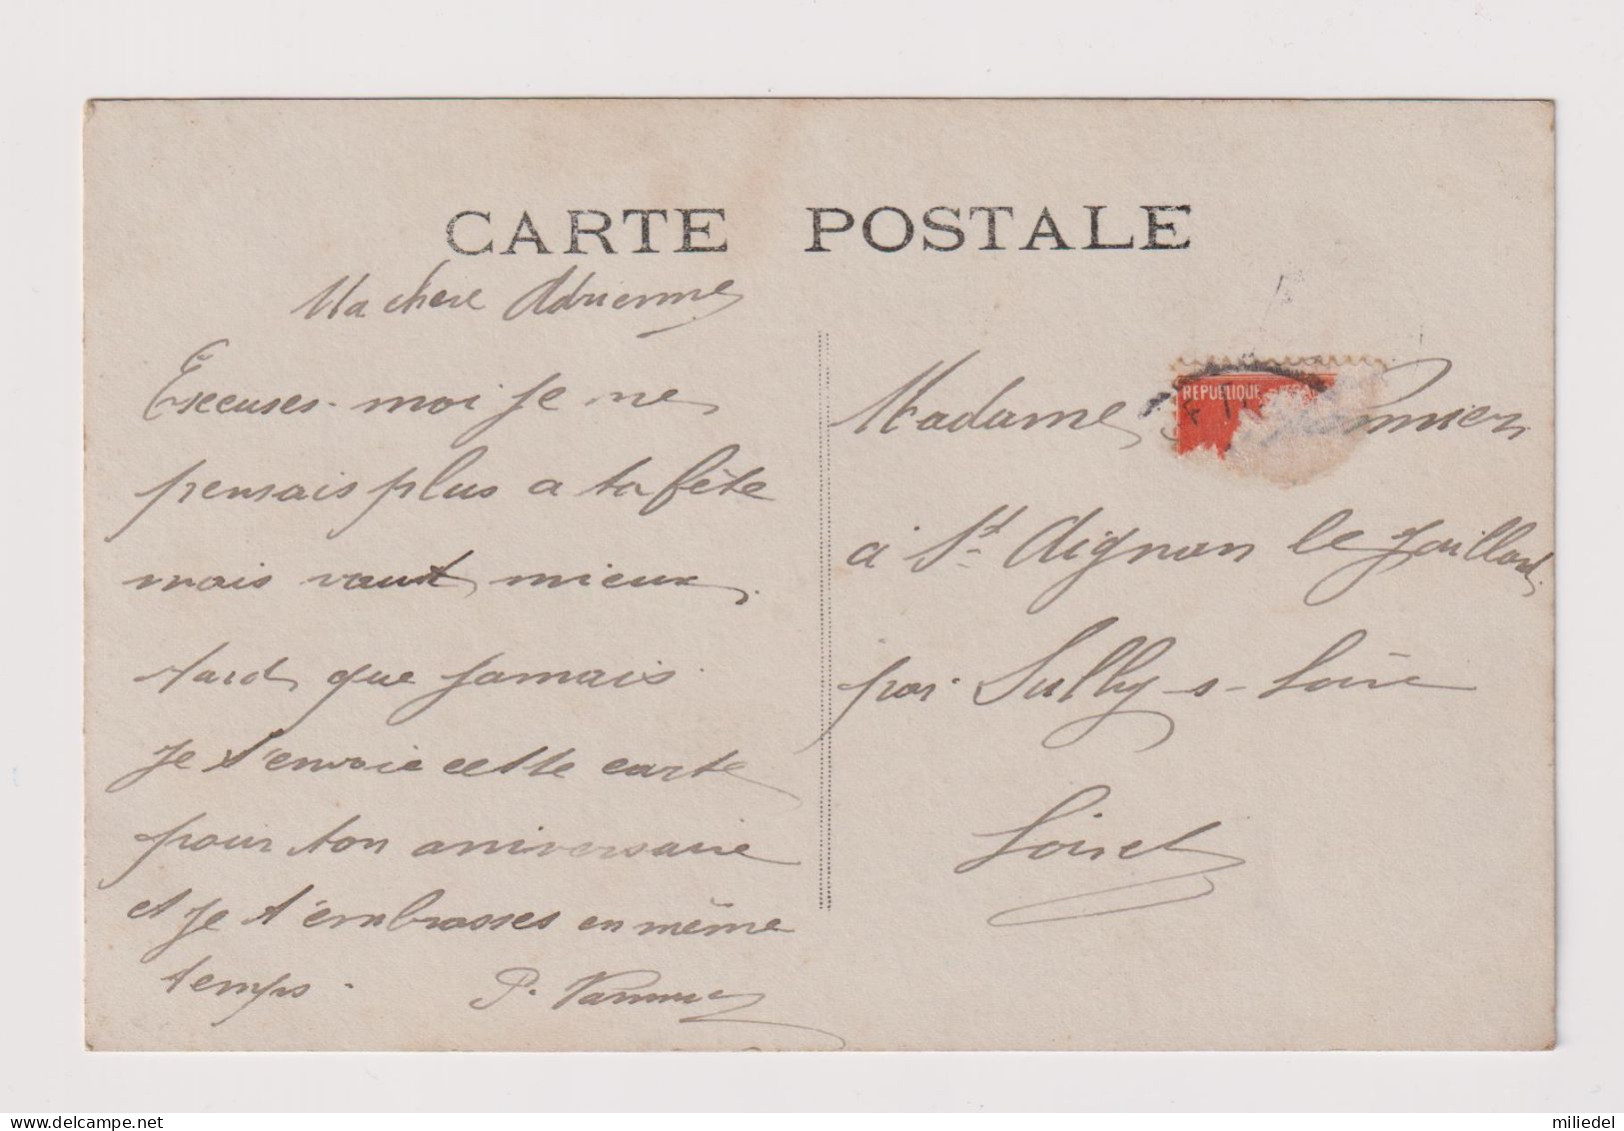 CARTE POSTALE
Ma chere Adrienne
Exceuses-moi je ne
pensais plus a ta fête
mais vaut mieux
tard que jamais.
je t'envoie cette carte
pour ton aniversaire
et je t'embrasses en même
temps.
P.
Madame
REPUBLIQUE
à St Aignan le Jaillard
par Sully-s-Loire
Loiret
miliedel